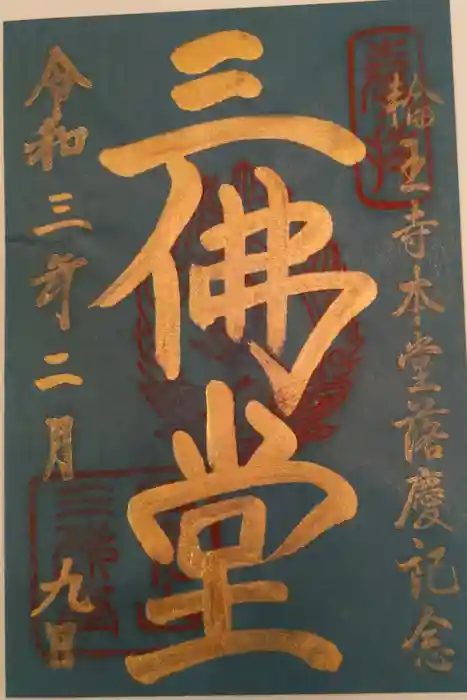 奉拝
輪王寺本堂落慶記念
三佛堂
令和三年二月九日